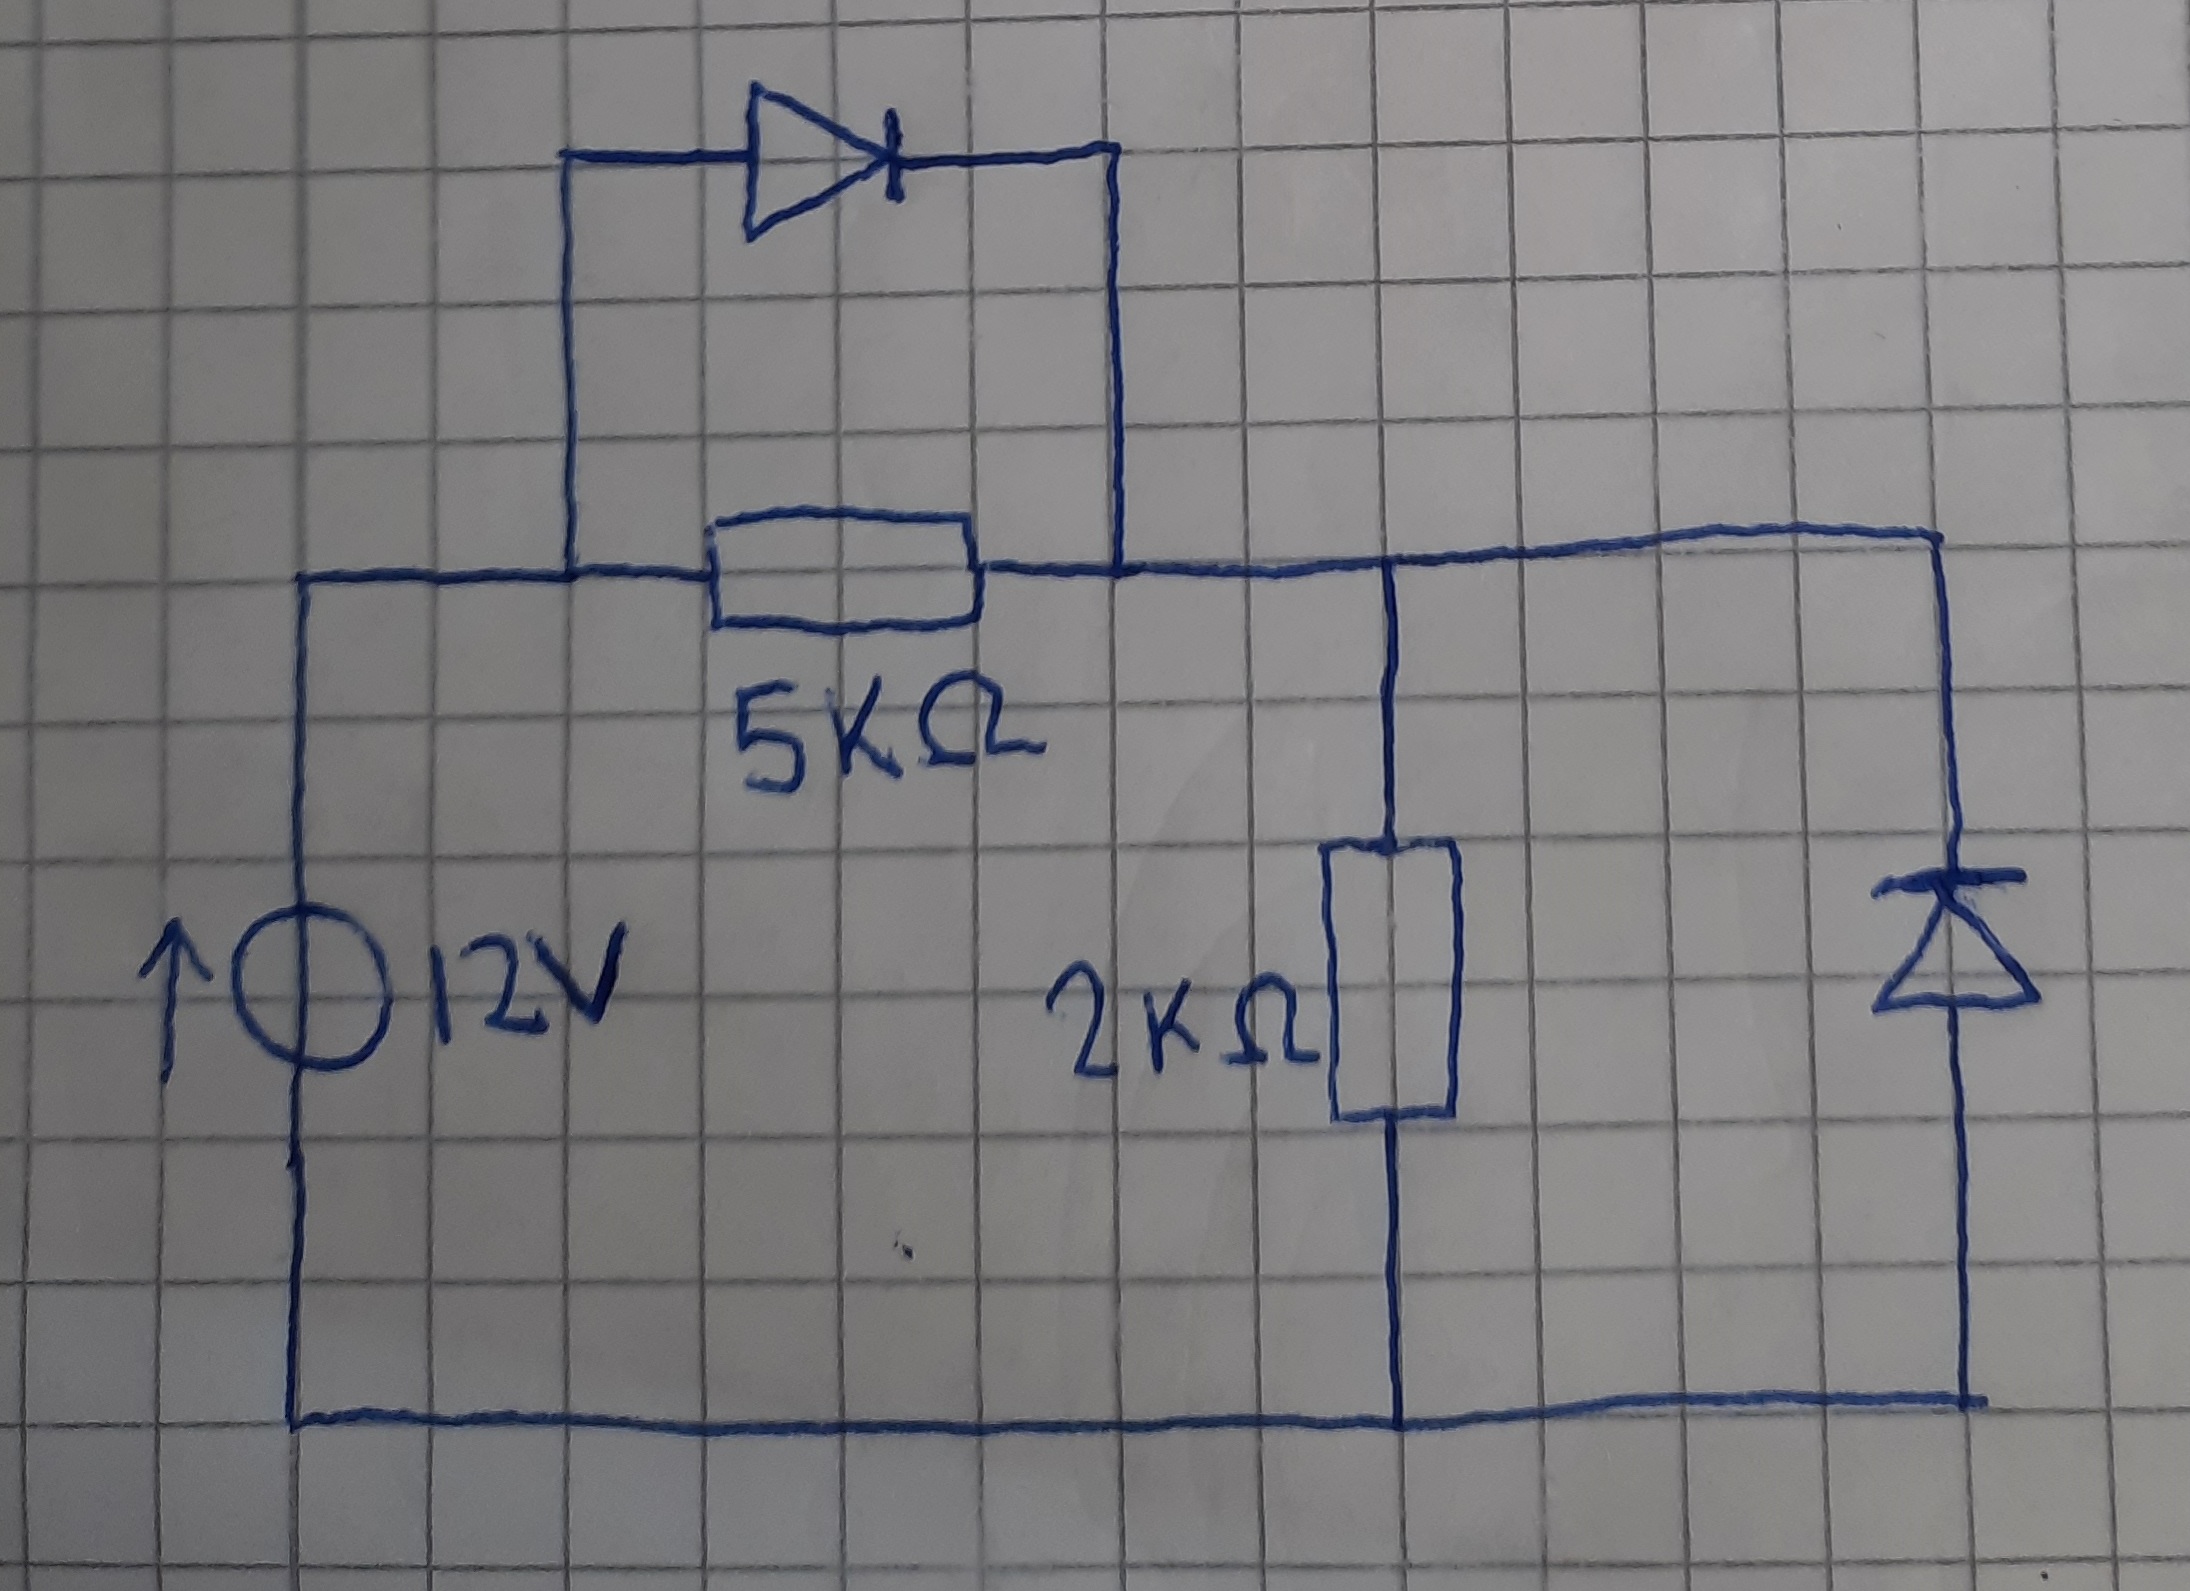 5KΩ
12V
2KΩ